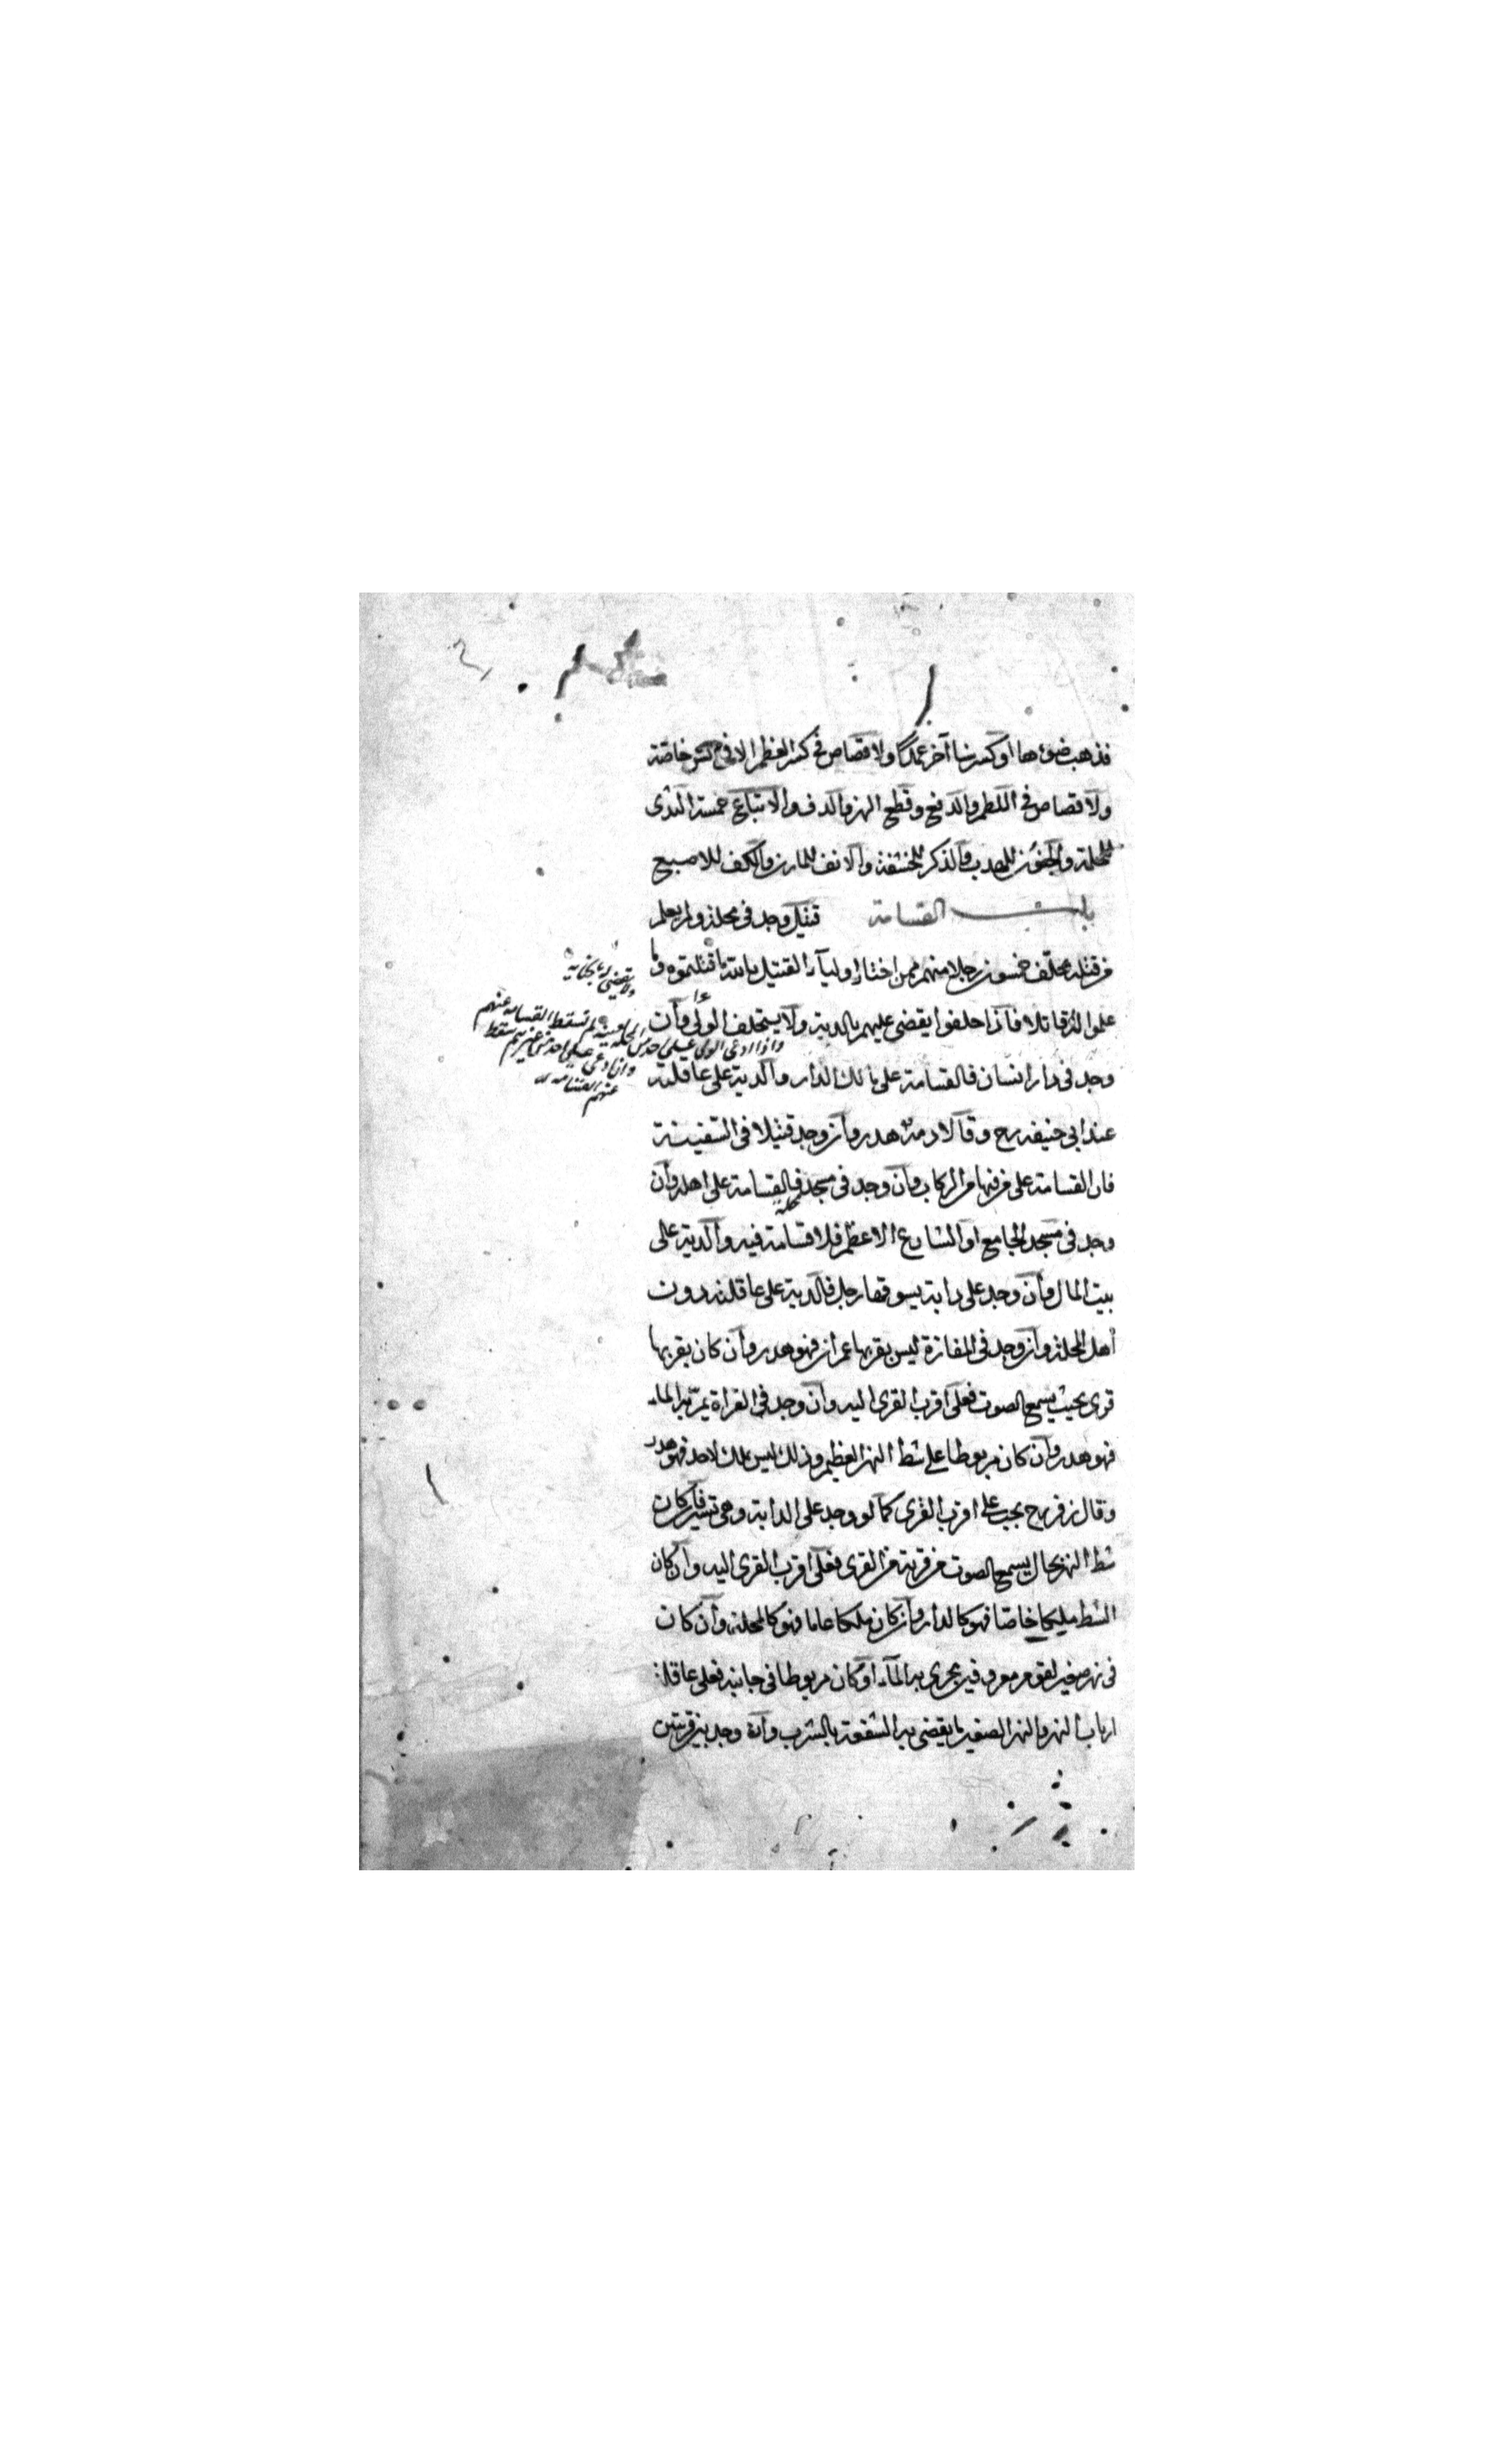 فذهب ضوءها او كسر سنا آخر عمدا ولا قصاص فى كسر العظم الا فى السن خاصّة
ولا قصاص فى اللطم والدفع وقطع الهز والدف والاتباع خمسة الثدى
للحلمة والجفون للهدب والذكر للحشفة والانف للمارن والكف للاصبع
باب القسامة قتيل وجد فى محلة ولم يعلم
من قتله يحلّف خمسون رجلا منهم ممن اختار اوليآء القتيل بالله ما قتلتموه وما
علموا له قاتلا فاذا حلفوا يقضى عليهم بالدية ولا يستحلف الولى وآن
وجد فى دار انسان فالقسامة على مالك الدار والدية على عاقلته
عند ابى حنيفه رح وقالا دمه هدر وآن وجد قتيلا فى السّفينة
فان القسامة على من فيها من الركاب وآن وجد فى مسجد محلة فالقسامة على اهله وآن
وجد فى مسجد الجامع او الشارع الاعظم فلا قسامة فيه والدية على
بيت المال وآن وجد على دابة يسوقها رجل فالدية على عاقلته دون
أهل المحلة وآن وجد فى المفازة ليس بقربها عمران فهو هدر وآن كان بقربها
قرى بحيث يسمع الصوت فعلى اقرب القرى اليه وآن وجد فى الفراة يمرّ به الماء
فهو هدر وآن كان مربوطا على شط النهر العظيم وذلك ليس بملك لاحد فهو هدر
وقال زفر رح يجب على اقرب القرى كما لو وجد على الدابة وهى تسير فان كان
شط النهر بحال يسمع الصوت من قرية من القرى فعلى اقرب القرى اليه وان كان
الشط ملكا خاصّا فهو كالدار وآن كان ملكا عاما فهو كالمحلة وآن كان
فى نهر صغير لقوم معروفين يجرى به المآء او كان مربوطا فى جانبه فعلى عاقلة
ارباب النهر والنهر الصغير ما يقضى به الشفعة بالشرب وآن وجد بين قريتين
ولا يقضى له بجناية
واذا ادعى الولى على احد من اهل المحلة بعينه لم تسقط القسامة عنهم
وان ادعى على احد من غيرهم سقط
عنهم القسامة